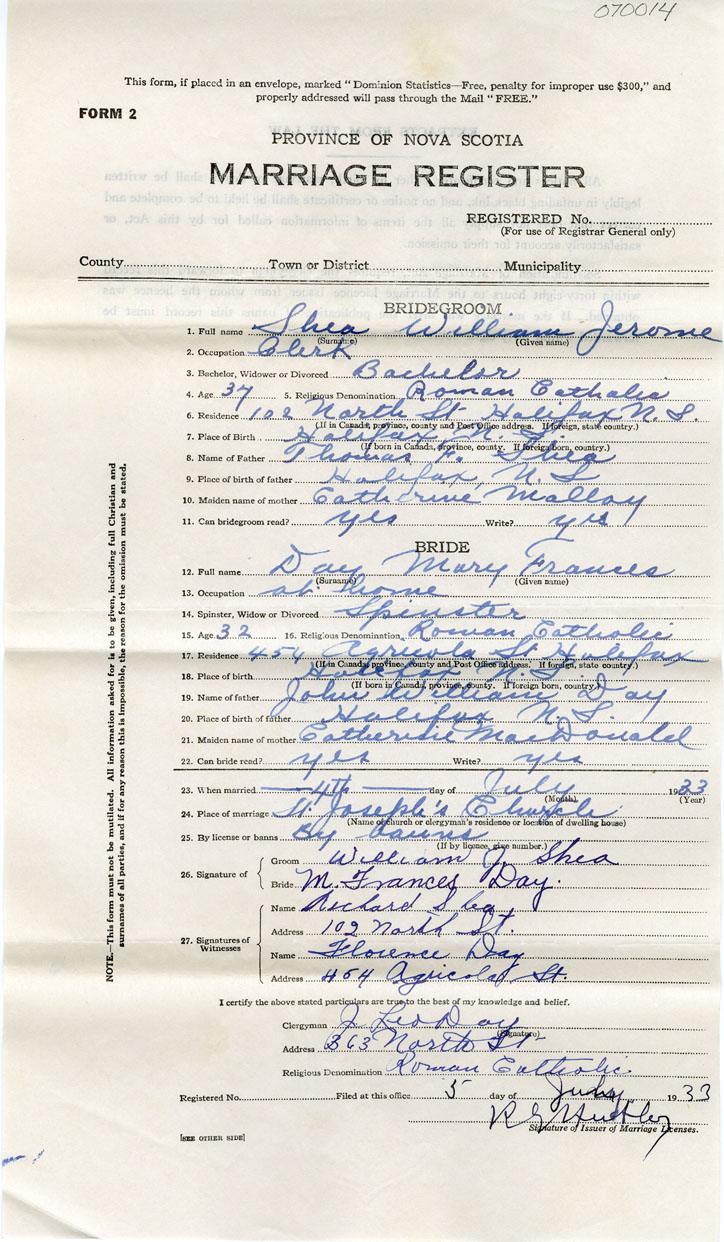 070014
This form, if placed in an envelope, marked "Dominion Statistics—Free, penalty for improper use $300," and
properly addressed will pass through the Mail "FREE."
FORM 2
PROVINCE OF NOVA SCOTIA
MARRIAGE REGISTER
REGISTERED No.
(For use of Registrar General only)
County Town or District Municipality
BRIDEGROOM
1. Full name Shea William Jerome
(Surname) (Given name)
2. Occupation Clerk
3. Bachelor, Widower or Divorced Bachelor
4. Age 37 5. Religious Denomination Roman Catholic
6. Residence 102 North St Halifax N.S.
(If in Canada, province, county and Post Office address. If foreign, state country.)
7. Place of Birth Halifax N.S.
(If born in Canada, province, county. If foreign born, country.)
8. Name of Father Thomas F. Shea
9. Place of birth of father Halifax, N.S
10. Maiden name of mother Catherine Malloy
11. Can bridegroom read? yes Write? yes
BRIDE
12. Full name Day Mary Frances
(Surname) (Given name)
13. Occupation at home
14. Spinster, Widow or Divorced Spinster
15. Age 32 16. Religious Denomination Roman Catholic
17. Residence 454 Agricola St Halifax
(If in Canada, province, county and Post Office address. If foreign, state country.)
18. Place of birth Halifax N.S.
(If born in Canada, province, county. If foreign born, country.)
19. Name of father John William Day
20. Place of birth of father Halifax N.S.
21. Maiden name of mother Catherine MacDonald
22. Can bride read? yes Write? yes
23. When married 4th day of July 1933
(Month) (Year)
24. Place of marriage St. Joseph's Church
(Name of church or clergyman's residence or location of dwelling house)
25. By license or banns By banns
(If by licence, give number.)
26. Signature of
Groom William J. Shea
Bride M. Frances Day.
27. Signatures of Witnesses
Name Richard Shea
Address 102 North St.
Name Florence Day
Address 454 Agricola St.
I certify the above stated particulars are true to the best of my knowledge and belief.
Clergyman J. Leo Day
(Signature)
Address 363 North St
Religious Denomination Roman Catholic.
Registered No. Filed at this office 5 day of July 1933
Signature of Issuer of Marriage Licenses.
[SEE OTHER SIDE]
NOTE.—This form must not be mutilated. All information asked for is to be given, including full Christian and
surnames of all parties, and if for any reason this is impossible, the reason for the omission must be stated.